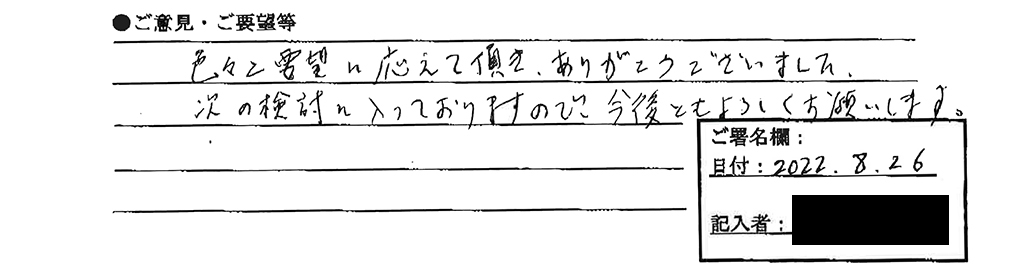 ●ご意見・ご要望等
色々と要望に応えて頂き、ありがとうございました。
次の検討に入っておりますので今後ともよろしくお願いします。
ご署名欄:
日付:2022.8.26
記入者: